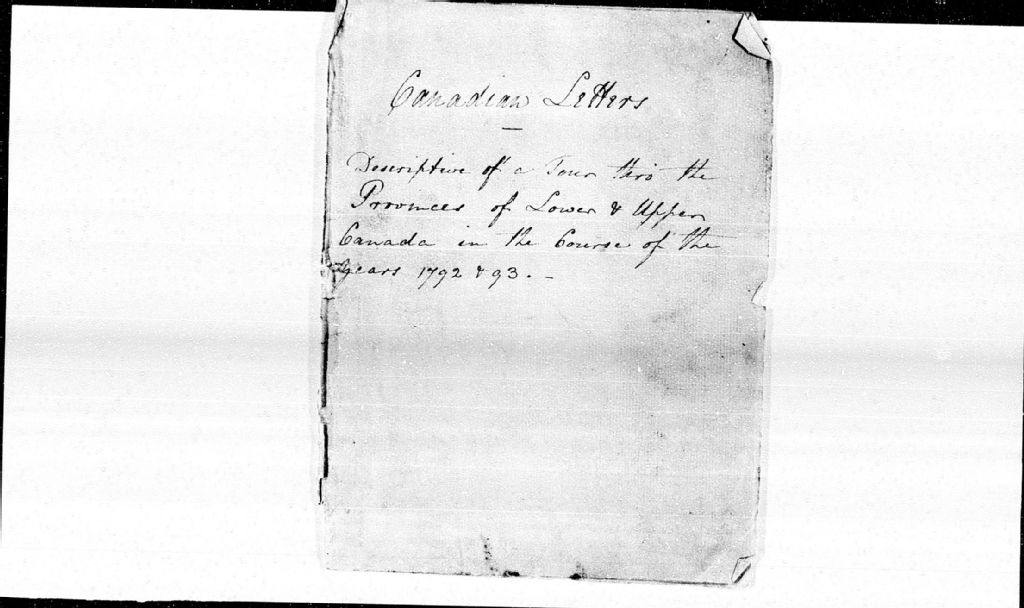 Canadian Letters
Descriptive of a Tour thro' the
Provinces of Lower & Upper
Canada in the Course of the
years 1792 & 93. -